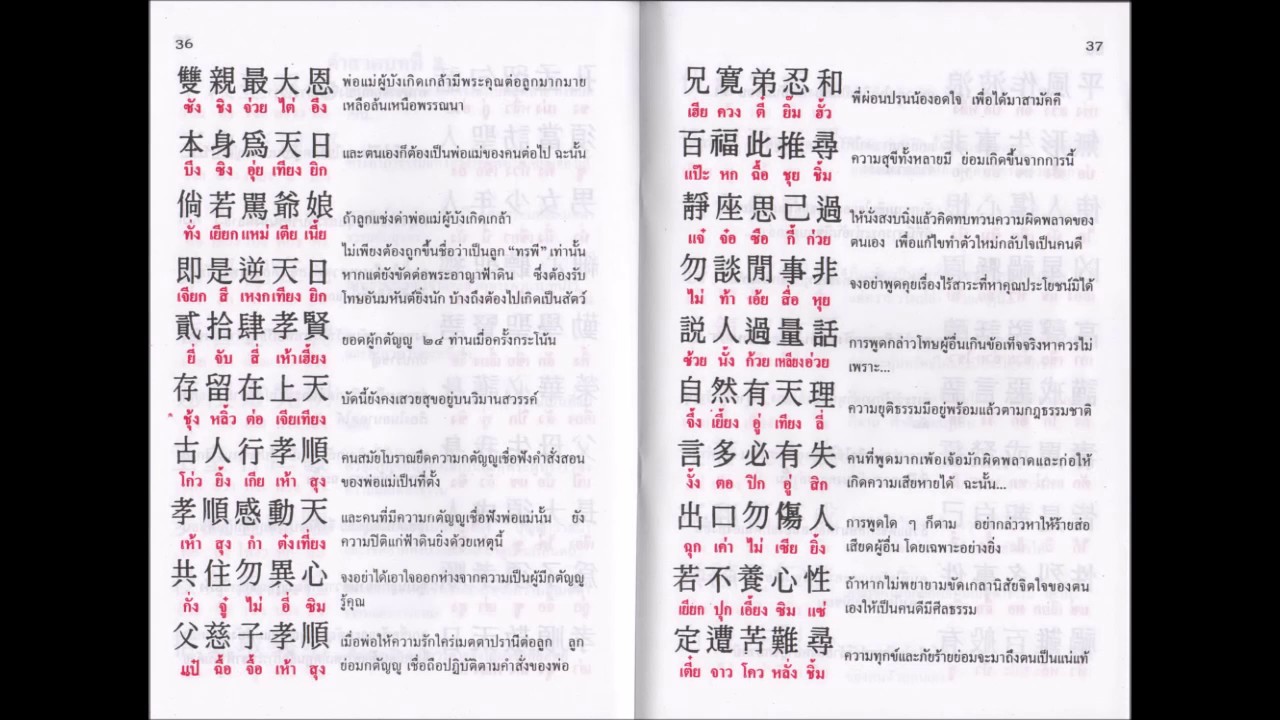 36
雙親最大恩 พ่อแม่ผู้บังเกิดเกล้ามีพระคุณต่อลูกมากมาย
ซัง ชิง จ่วย ไต่ อึง เหลือล้นเหนือพรรณนา
本身爲天日 และตนเองก็ต้องเป็นพ่อแม่ของคนต่อไป ฉะนั้น
บึง ซิง อุ่ย เทียง ยิก
倘若罵爺娘 ถ้าลูกแช่งด่าพ่อแม่ผู้บังเกิดเกล้า
ทั่ง เยียก แหม่ เตีย เนี้ย ไม่เพียงต้องถูกขึ้นชื่อว่าเป็นลูก “ทรพี” เท่านั้น
即是逆天日 หากแต่ยังขัดต่อพระอาญาฟ้าดิน ซึ่งต้องรับ
เจียก สี เหงก เทียง ยิก โทษอันมหันต์ยิ่งนัก บ้างถึงต้องไปเกิดเป็นสัตว์
貳拾肆孝賢 ยอดผู้กตัญญู ๒๔ ท่านเมื่อครั้งกระโน้น
ยี่ จับ สี่ เห้า เฮี้ยง
存留在上天 บัดนี้ยังคงเสวยสุขอยู่บนวิมานสวรรค์
* ชุ้ง หลิ้ว ต่อ เจียเทียง
古人行孝順 คนสมัยโบราณยึดความกตัญญูเชื่อฟังคำสั่งสอน
โก่ว ยิ้ง เกีย เห้า สุง ของพ่อแม่เป็นที่ตั้ง
孝順感動天 และคนที่มีความกตัญญูเชื่อฟังพ่อแม่นั้น ยัง
เห้า สุง กำ ต๋งเที่ยง ความปิติแก่ฟ้าดินยิ่งด้วยเหตุนี้
共住勿異心 จงอย่าได้เอาใจออกห่างจากความเป็นผู้มีกตัญญู
กัง จู๋ ไม่ อี๋ ซิม รู้คุณ
父慈子孝順 เมื่อพ่อให้ความรักใคร่เมตตาปรานีต่อลูก ลูก
แป๋ ฉื้อ จื้อ เห้า สุง ย่อมกตัญญู เชื่อถือปฏิบัติตามคำสั่งของพ่อ
37
兄寬弟忍和 พี่ผ่อนปรนน้องอดใจ เพื่อได้มาสามัคคี
เฮีย ควง ตี๋ ยิ๊ม ฮั้ว
百福此推尋 ความสุขีทั้งหลายมี ย่อมเกิดขึ้นจากการนี้
แป๊ะ หก ฉื้อ ชุย ชิ้ม
靜座思己過 ให้นั่งสงบนิ่งแล้วคิดทบทวนความผิดพลาดของ
แจ๋ จ๋อ ซือ กี้ ก่วย ตนเอง เพื่อแก้ไขทำตัวใหม่กลับใจเป็นคนดี
勿談閒事非 จงอย่าพูดคุยเรื่องไร้สาระที่หาคุณประโยชน์มิได้
ไม่ ท้า เอ้ย สื่อ หุย
説人過量話 การพูดกล่าวโทษผู้อื่นเกินข้อเท็จจริงหาควรไม่
ซ้วย นั้ง ก้วย เหลียงอ่วย เพราะ...
自然有天理 ความยุติธรรมมีอยู่พร้อมแล้วตามกฎธรรมชาติ
จื้ง เยี้ยง อู่ เทียง ลี่
言多必有失 คนที่พูดมากเพ้อเจ้อมักผิดพลาดและก่อให้
งั้ง ตอ ปิก อู่ สิก เกิดความเสียหายได้ ฉะนั้น...
出口勿傷人 การพูดใด ๆ ก็ตาม อย่ากล่าวหาให้ร้ายส่อ
ฉุก เค่า ไม่ เซีย ยิ้ง เสียดผู้อื่น โดยเฉพาะอย่างยิ่ง
若不養心性 ถ้าหากไม่พยายามขัดเกลานิสัยจิตใจของตน
เยียก ปุก เอี้ยง ซิม แซ่ เองให้เป็นคนดีมีศีลธรรม
定遭苦難尋 ความทุกข์และภัยร้ายย่อมจะมาถึงตนเป็นแน่แท้
เตี๋ย จาว โคว หลั่ง ชิ้ม